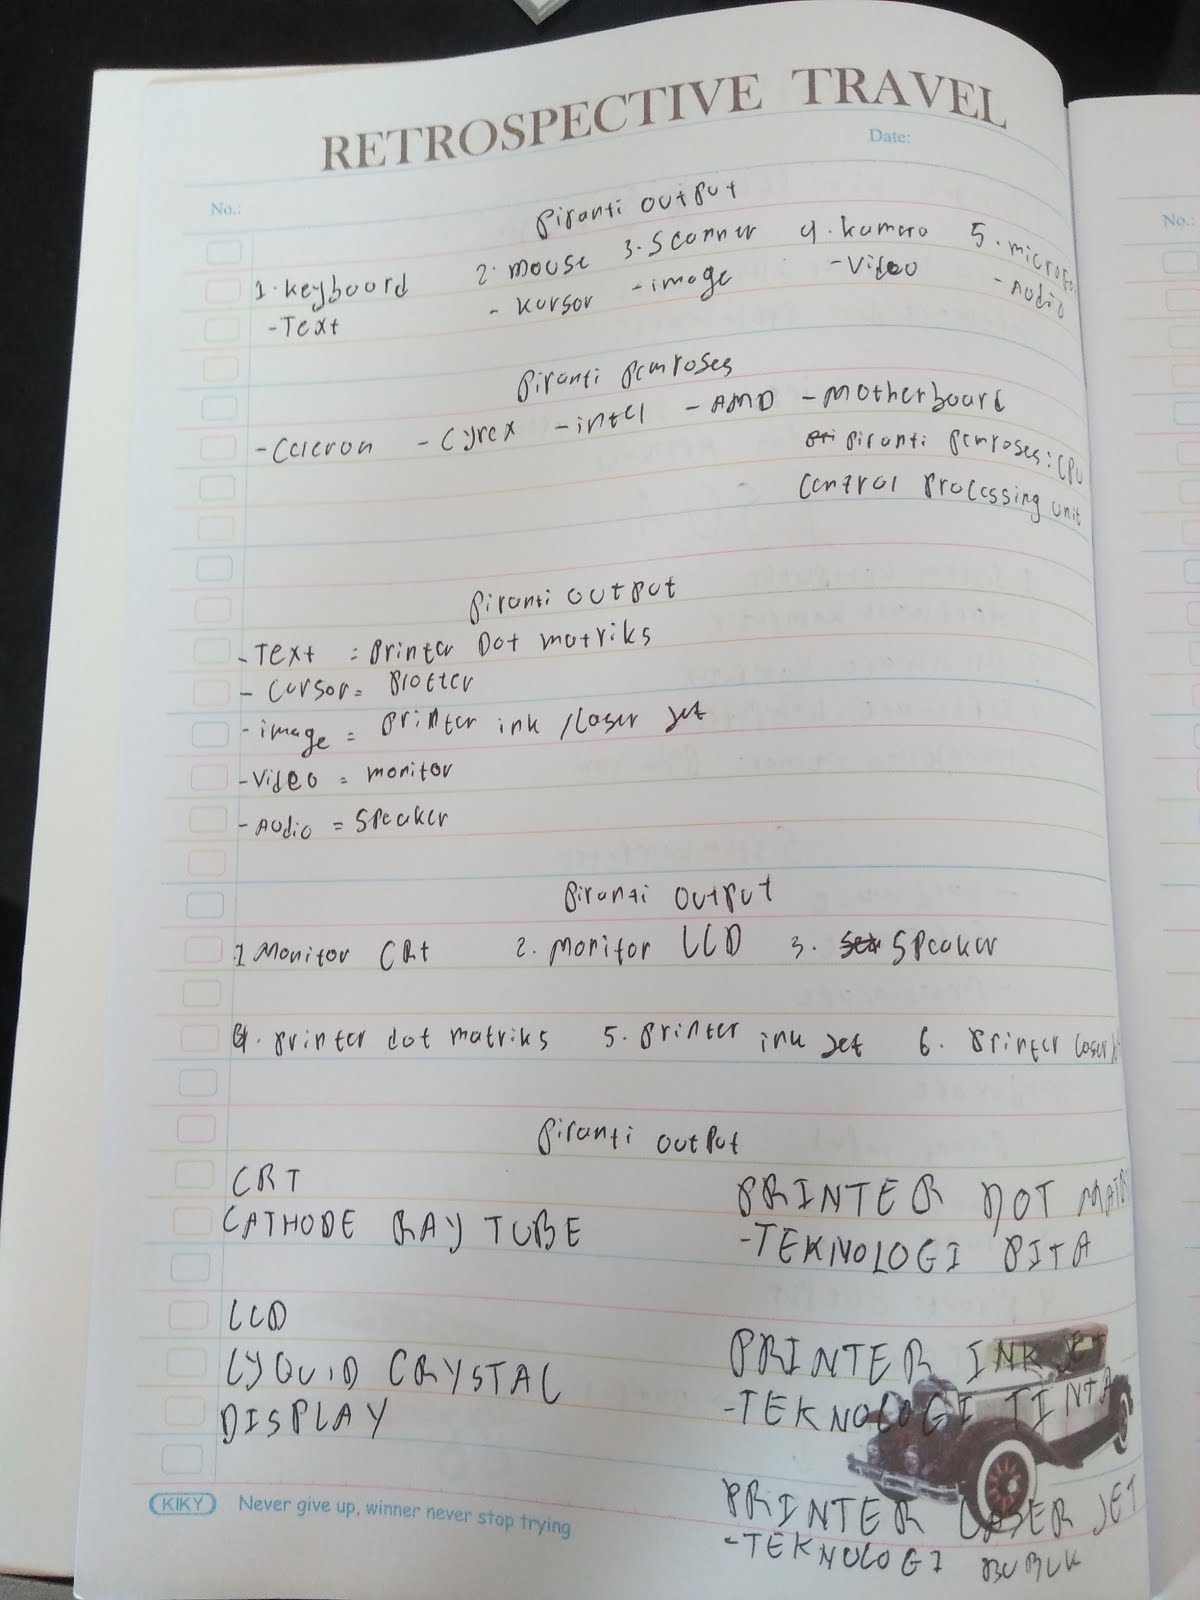 RETROSPECTIVE TRAVEL
Date:
No.:
Piranti output
1. keyboard 2. mouse 3. Scanner 4. kamera 5.
- Text - kursor - image - Video - Audio
Piranti pemroses
- Celeron - Cyrex - intel - AMD - Motherboard
Piranti pemroses: CPU
Central Processing unit
Piranti output
- Text = Printer Dot matriks
- Cursor = Plotter
- image = Printer ink / Laser Jet
- Video = monitor
- Audio = Speaker
Piranti output
1 Monitor CRt 2. monitor LCD 3. Speaker
4. Printer dot matriks 5. Printer ink Jet 6. Printer Laser
Piranti output
CRT
CATHODE RAY TUBE
LCD
LYQUID CRYSTAL
DISPLAY
PRINTER DOT
-TEKNOLOGI PITA
PRINTER INK JET
-TEKNOLOGI TINTA
PRINTER LASER JET
-TEKNOLOGI BUBUK
KIKY Never give up, winner never stop trying
No.: